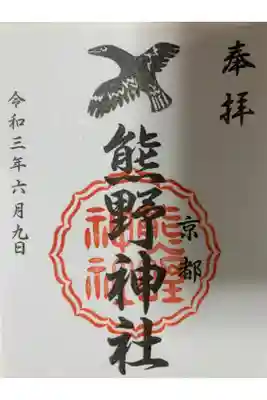 奉拝
京都
熊野神社
令和三年六月九日